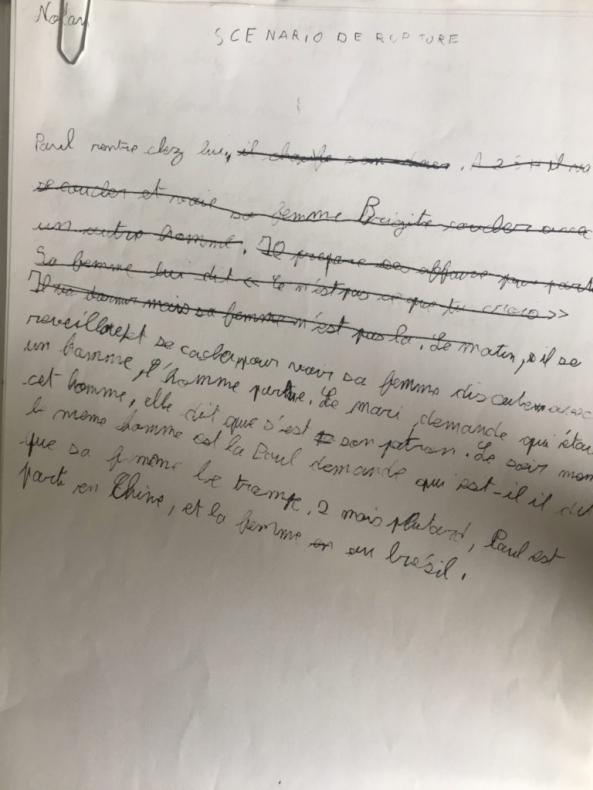 Nolan
SCENARIO DE RUPTURE
Paul rentre chez lui, il chauffe son . A 2 il va
se coucher et voie sa femme Brigite coucher avec
un autre homme. Il prepare ses affaires pour parti
Sa femme lui dit « Ce n'est pas ce que tu crois »
Il va dormir mais sa femme n'est pas la. Le matin, il se
reveille et se cache pour voir sa femme discuter avec
un homme, l'homme part. Le mari demande qui étai
cet homme, elle dit que s'est son patron. Le soir mem
le même homme est la Paul demande qui est-il il dit
que sa femme le trampe. 2 mois plutard, Paul est
parti en Chine, et la femme en au brésil.